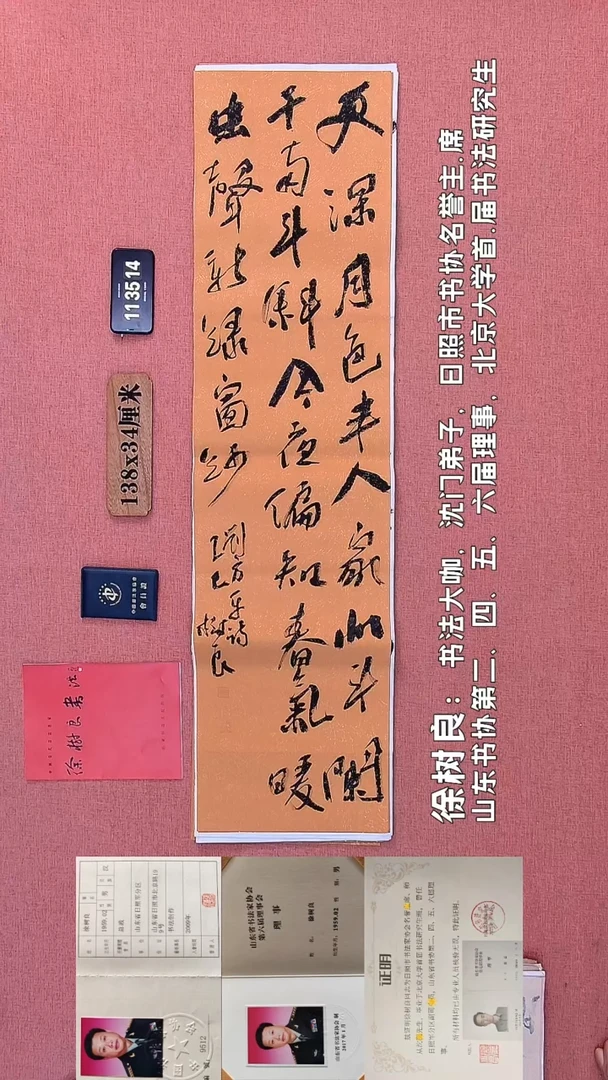 更深月色半人家北斗闌
干南斗斜今夜偏知春氣暖
虫聲新綠窗紗
劉方平詩
樹良
徐树良：书法大咖，沈门弟子，日照市书协名誉主.席
山东书协第二、四、五、六届理事，北京大学首.届书法研究生
113514
138x34厘米
會員證
徐樹良書法
山东省书法家协会
第六届理事会
理 事
徐树良
男
证明
9512